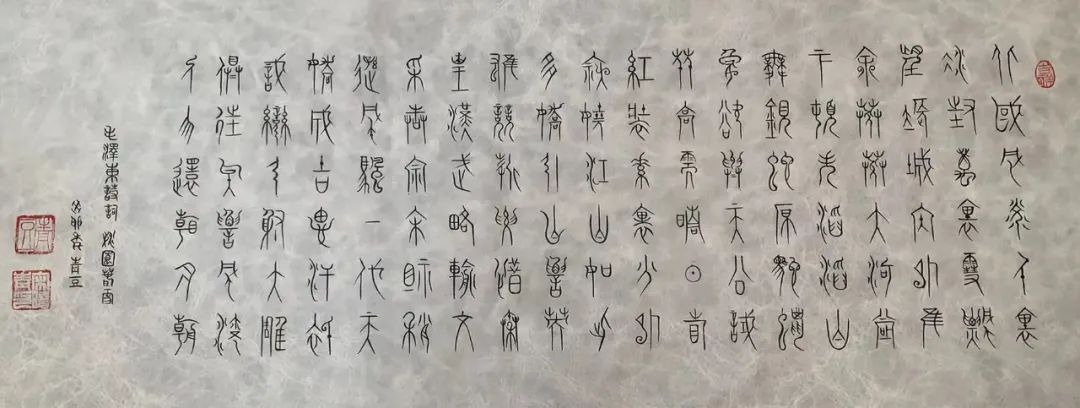 北國風光千里
冰封萬里雪飄
望長城内外惟
余莽莽大河上
下頓失滔滔山
舞銀蛇原馳蠟
象欲與天公試
比高須晴日看
紅裝素裹分外
妖嬈江山如此
多嬌引無數英
雄競折腰惜秦
皇漢武略輸文
采唐宗宋祖稍
遜風騷一代天
驕成吉思汗只
識彎弓射大雕
俱往矣數風流
人物還看今朝
毛澤東詩詞 沁園春雪